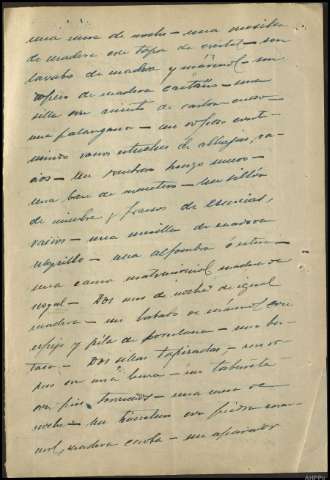 una mesa de noche – una mesita
de madera con tapa de cristal – un
lavabo de madera y mármol – un
ropero de madera castaño – una
silla con asiento de carton cuero –
una palangana – un
varios estuches de alhajas, va-
cios – Un sombrero hongo nuevo –
una base de – Un sillón
de mimbre y frascos de esencias,
vacios – una mesilla de madera
negrilla – una alfombra ó estera –
una cama matrimonial madera de
nogal – Dos mesas de noche de igual
madera – un lavabo de mármol con
espejo y pila de porcelana – una bu-
taca – Dos sillas tapizadas –
 – un taburete
con pies torneados – una mesa de
noche – Un con piedra mar-
mol, madera caoba – un aparador
AHPPo